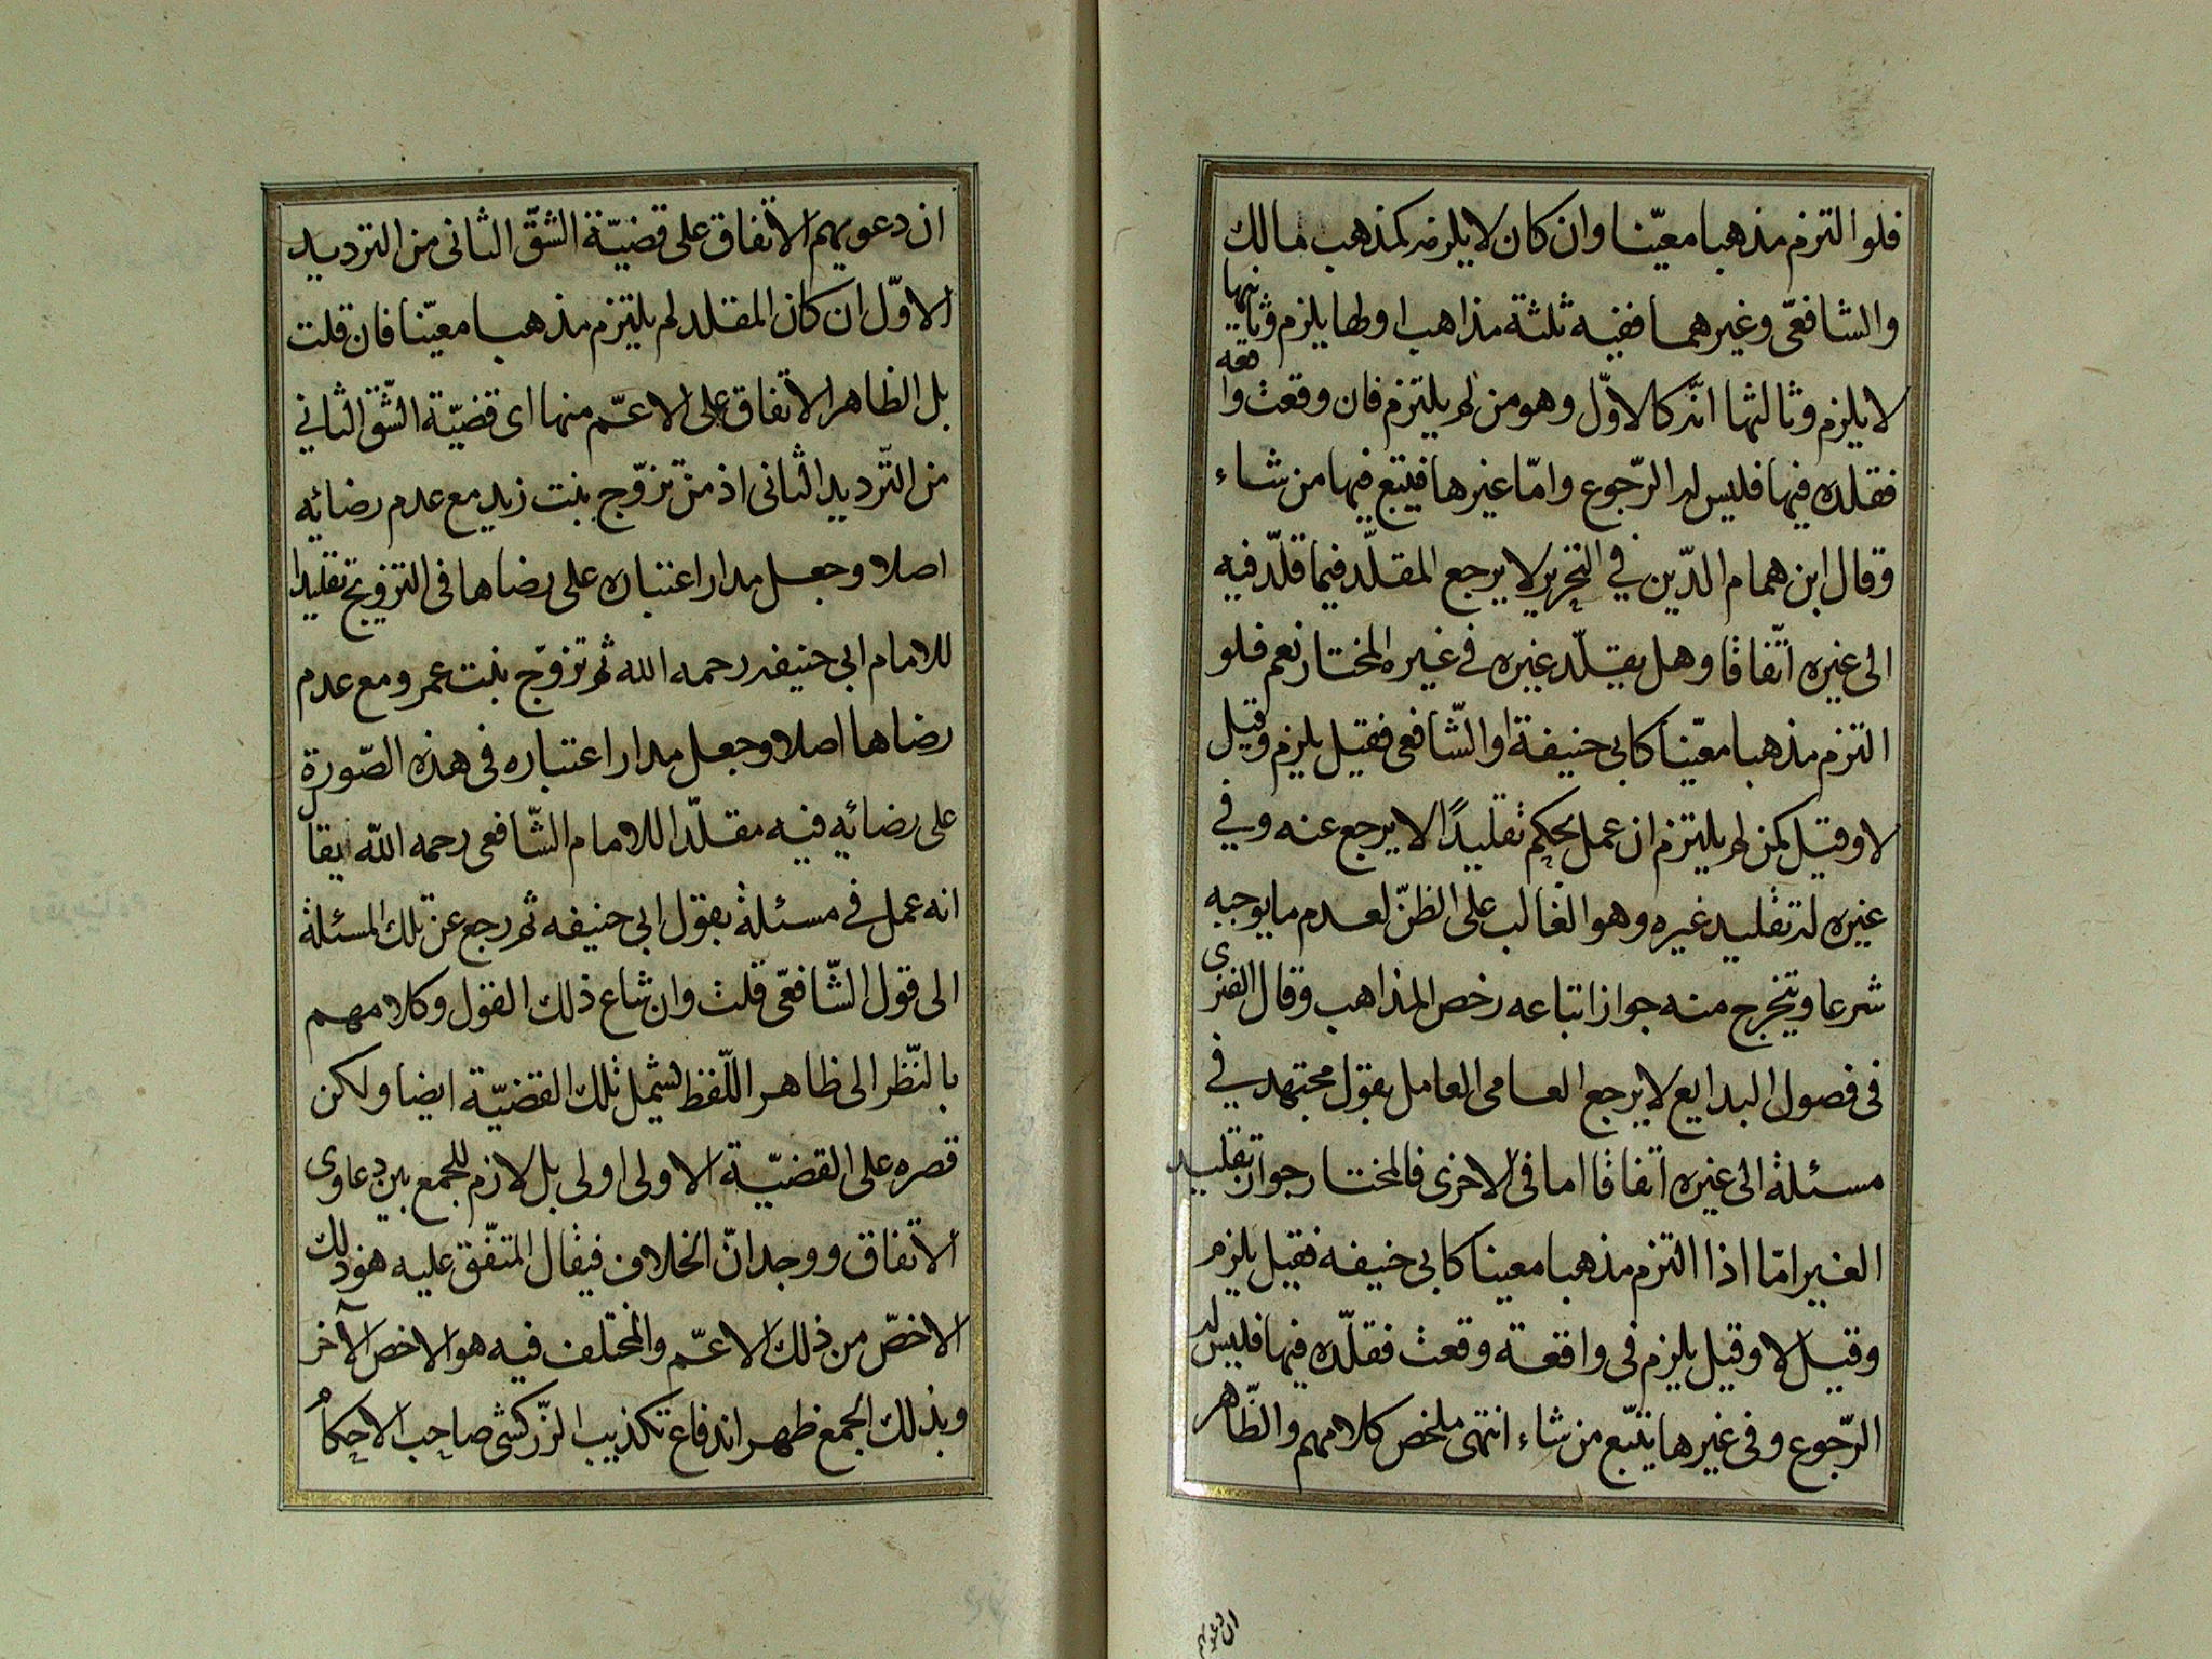 فلو التزم مذهبا معيّنا وان كان لا يلزمه كمذهب مالك
والشافعى وغيرهما ففيه ثلثة مذاهب اولها يلزم وثانيها
لا يلزم وثالثها انّه كالاوّل وهو من لم يلتزم فان وقعت واقعه
فقلده فيها فليس له الرّجوع وامّا غيرها فيتبع فيها من شاء
وقال ابن همام الدّين في التحرير لا يرجع المقلّد فيما قلّد فيه
الى غيره اتّفاقا وهل يقلّد غيره فى غيره المختار نعم فلو
التزم مذهبا معيّنا كابى حنيفة او الشّافعى فقيل يلزم وقيل
لا وقيل كمن لم يلتزم ان عمل بحكم تقليدًا لا يرجع عنه وفي
غيره له تقليد غيره وهو الغالب على الظنّ لعدم ما يوجبه
شرعا ويتخرج منه جواز اتباعه رخص المذاهب وقال الفنرى
فى فصول البدايع لا يرجع العامى العامل بقول مجتهد في
مسئلة الى غيره اتفاقا اما فى الاخرى فالمختار جواز تقليد
الغير امّا اذا التزم مذهبا معينا كابى حنيفه فقيل يلزم
وقيل لا وقيل يلزم فى واقعة وقعت فقلّده فيها فليس له
الرّجوع وفى غيرها يتّبع من شاء انتهى ملخص كلامهم والظّاهر
ان دعويهم
ان دعويهم الاتفاق على قضيّة الشّقّ الثانى من الترديد
الاوّل ان كان المقلد لم يلتزم مذهبا معيّنا فان قلت
بل الظاهر الاتفاق على الاعمّ منها اى قضيّة الشّق الثاني
من التّرديد الثانى اذ من تزوّج بنت زيد مع عدم رضائه
اصلا وجعل مدار اعتباره على رضاها فى التزويج تقليدا
للامام ابى حنيفه رحمه الله ثم تزوّج بنت عمرو مع عدم
رضاها اصلا وجعل مدار اعتباره فى هذه الصّورة
على رضائه فيه مقلّدا للامام الشّافعى رحمه الله يقال
انه عمل فى مسئلة بقول ابى حنيفه ثم رجع عن تلك المسئلة
الى قول الشّافعىّ قلت وان شاع ذلك القول وكلامهم
بالنّظر الى ظاهر اللّفظ يشمل تلك القضيّة ايضا ولكن
قصره على القضيّة الاولى اولى بل لازم للجمع بين دعاوى
الاتفاق ووجدانّ الخلاف فيقال المتفّق عليه هو ذلك
الاخصّ من ذلك الاعمّ والمختلف فيه هو الاخص الآخر
وبذلك الجمع ظهر اندفاع تكذيب الزّركشى صاحب الاحكام